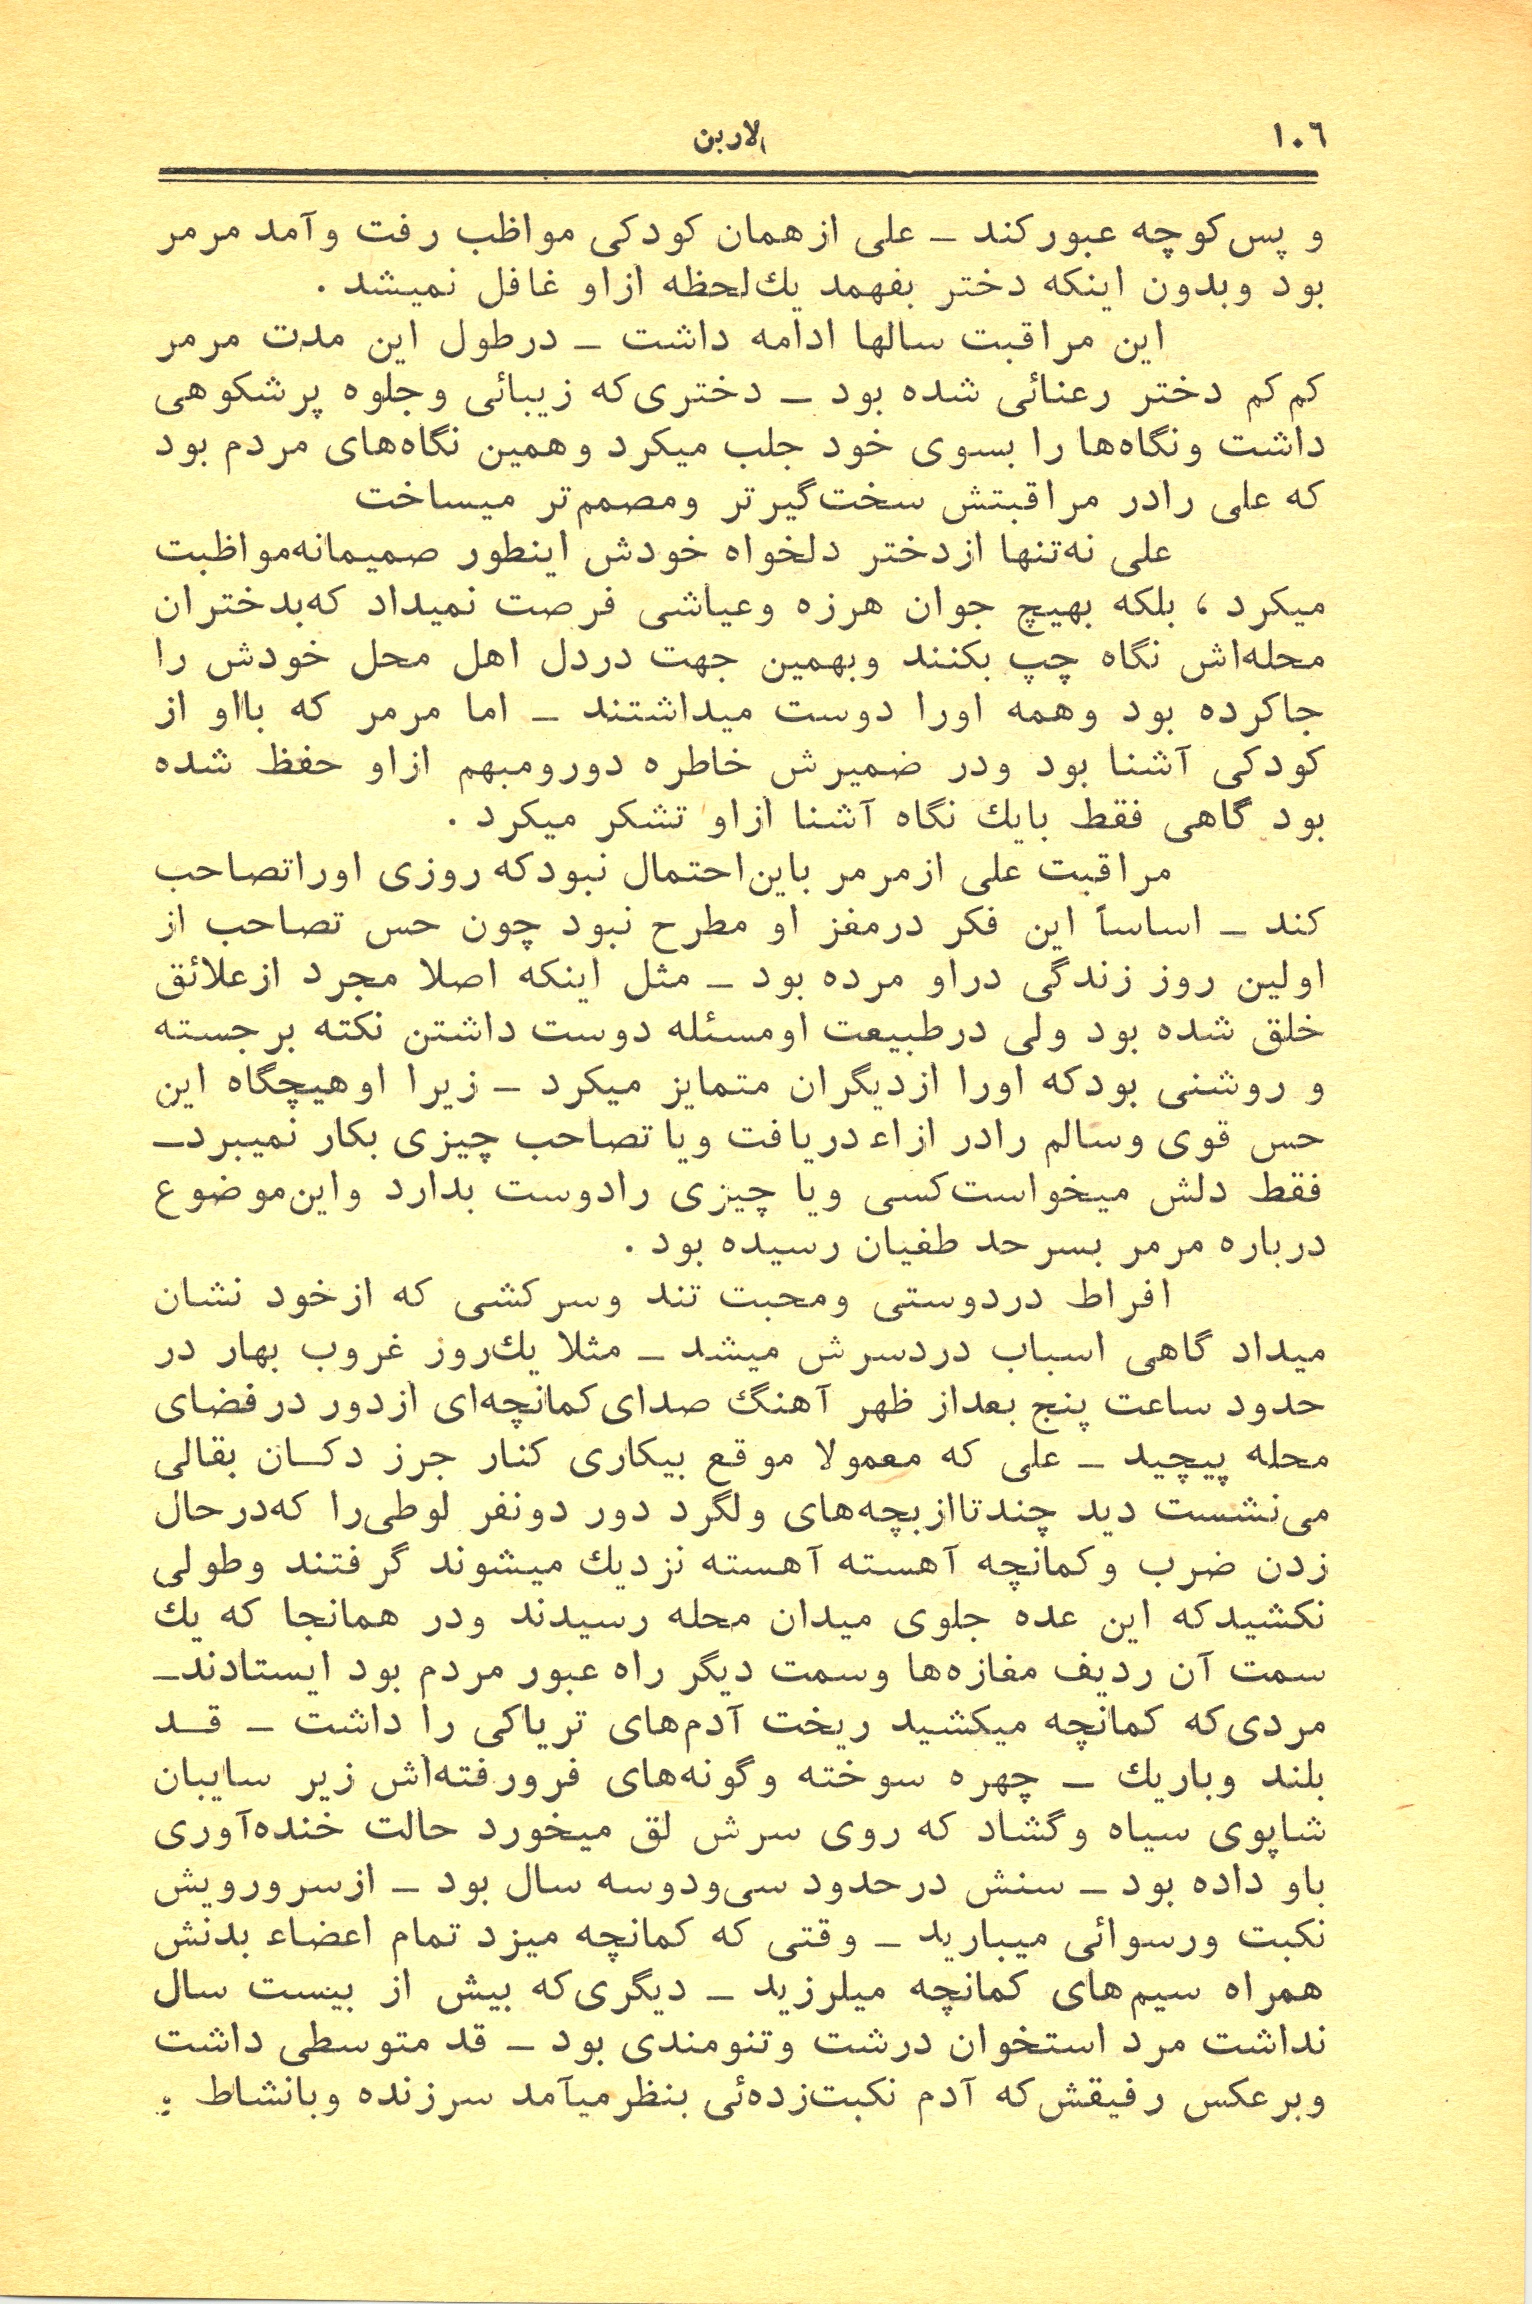 ۱۰۶
الاربن
و پس‌کوچه عبورکند – علی ازهمان کودکی مواظب رفت وآمد مرمر
بود وبدون اینکه دختر بفهمد یك‌لحظه ازاو غافل نمیشد .
این مراقبت سالها ادامه داشت – درطول این مدت مرمر
کم‌کم دختر رعنائی شده بود – دختری‌که زیبائی وجلوه پرشکوهی
داشت ونگاه‌ها را بسوی خود جلب میکرد وهمین نگاه‌های مردم بود
که علی رادر مراقبتش سخت‌گیرتر ومصمم‌تر میساخت
علی نه‌تنها ازدختر دلخواه خودش اینطور صمیمانه‌مواظبت
میکرد ، بلکه بهیچ جوان هرزه وعیاشی فرصت نمیداد که‌بدختران
محله‌اش نگاه چپ بکنند وبهمین جهت دردل اهل محل خودش را
جاکرده بود وهمه اورا دوست میداشتند – اما مرمر که بااو از
کودکی آشنا بود ودر ضمیرش خاطره دورومبهم ازاو حفظ شده
بود گاهی فقط بایك نگاه آشنا ازاو تشکر میکرد .
مراقبت علی ازمرمر باین‌احتمال نبودکه روزی اوراتصاحب
کند – اساساً این فکر درمفز او مطرح نبود چون حس تصاحب از
اولین روز زندگی دراو مرده بود – مثل اینکه اصلا مجرد ازعلائق
خلق شده بود ولی درطبیعت اومسئله دوست داشتن نکته برجسته
و روشنی بودکه اورا ازدیگران متمایز میکرد – زیرا اوهیچگاه این
حس قوی وسالم رادر ازاء دریافت ویا تصاحب چیزی بکار نمیبرد–
فقط دلش میخواست‌کسی ویا چیزی رادوست بدارد واین‌موضوع
درباره مرمر بسرحد طفیان رسیده بود .
افراط دردوستی ومحبت تند وسرکشی که ازخود نشان
میداد گاهی اسباب دردسرش میشد – مثلا یك‌روز غروب بهار در
حدود ساعت پنج بعداز ظهر آهنگ صدای‌کمانچه‌ای ازدور درفضای
محله پیچید – علی که معمولا موقع بیکاری کنار جرز دکــان بقالی
می‌نشست دید چندتاازبچه‌های ولگرد دور دونفر لوطی‌را که‌درحال
زدن ضرب وکمانچه آهسته آهسته نزدیك میشوند گرفتند وطولی
نکشیدکه این عده جلوی میدان محله رسیدند ودر همانجا که یك
سمت آن ردیف مفازه‌ها وسمت دیگر راه عبور مردم بود ایستادند–
مردی‌که کمانچه میکشید ریخت آدم‌های تریاکی را داشت – قــد
بلند وباریك – چهره سوخته وگونه‌های فرورفته‌اش زیر سایبان
شاپوی سیاه وگشاد که روی سرش لق میخورد حالت خنده‌آوری
باو داده بود – سنش درحدود سی‌ودوسه سال بود – ازسرورویش
نکبت ورسوائی میبارید – وقتی که کمانچه میزد تمام اعضاء بدنش
همراه سیم‌های کمانچه میلرزید – دیگری‌که بیش از بیست سال
نداشت مرد استخوان درشت وتنومندی بود – قد متوسطی داشت
وبرعکس رفیقش‌که آدم نکبت‌زده‌ئی بنظرمیآمد سرزنده وبانشاط